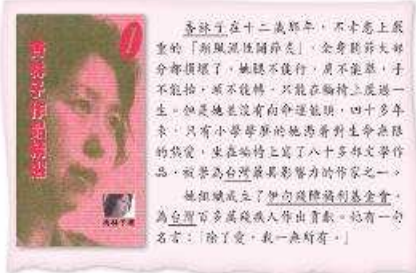 杏林子作品精選
1
杏林子著
杏林子在十二歲那年，不幸患上嚴
重的「類風濕性關節炎」，全身關節大部
分都損壞了，她腿不能行，肩不能舉，手
不能抬，頭不能轉，只能在輪椅上度過一
生。但是她並沒有向命運低頭，四十多年
來，只有小學學歷的她憑着對生命無限
的熱愛，坐在輪椅上寫了八十多部文學作
品，被譽為台灣最具影響力的作家之一。
她組織成立了伊甸殘障福利基金會，
為台灣百多萬殘疾人作出貢獻。她有一句
名言：「除了愛，我一無所有。」